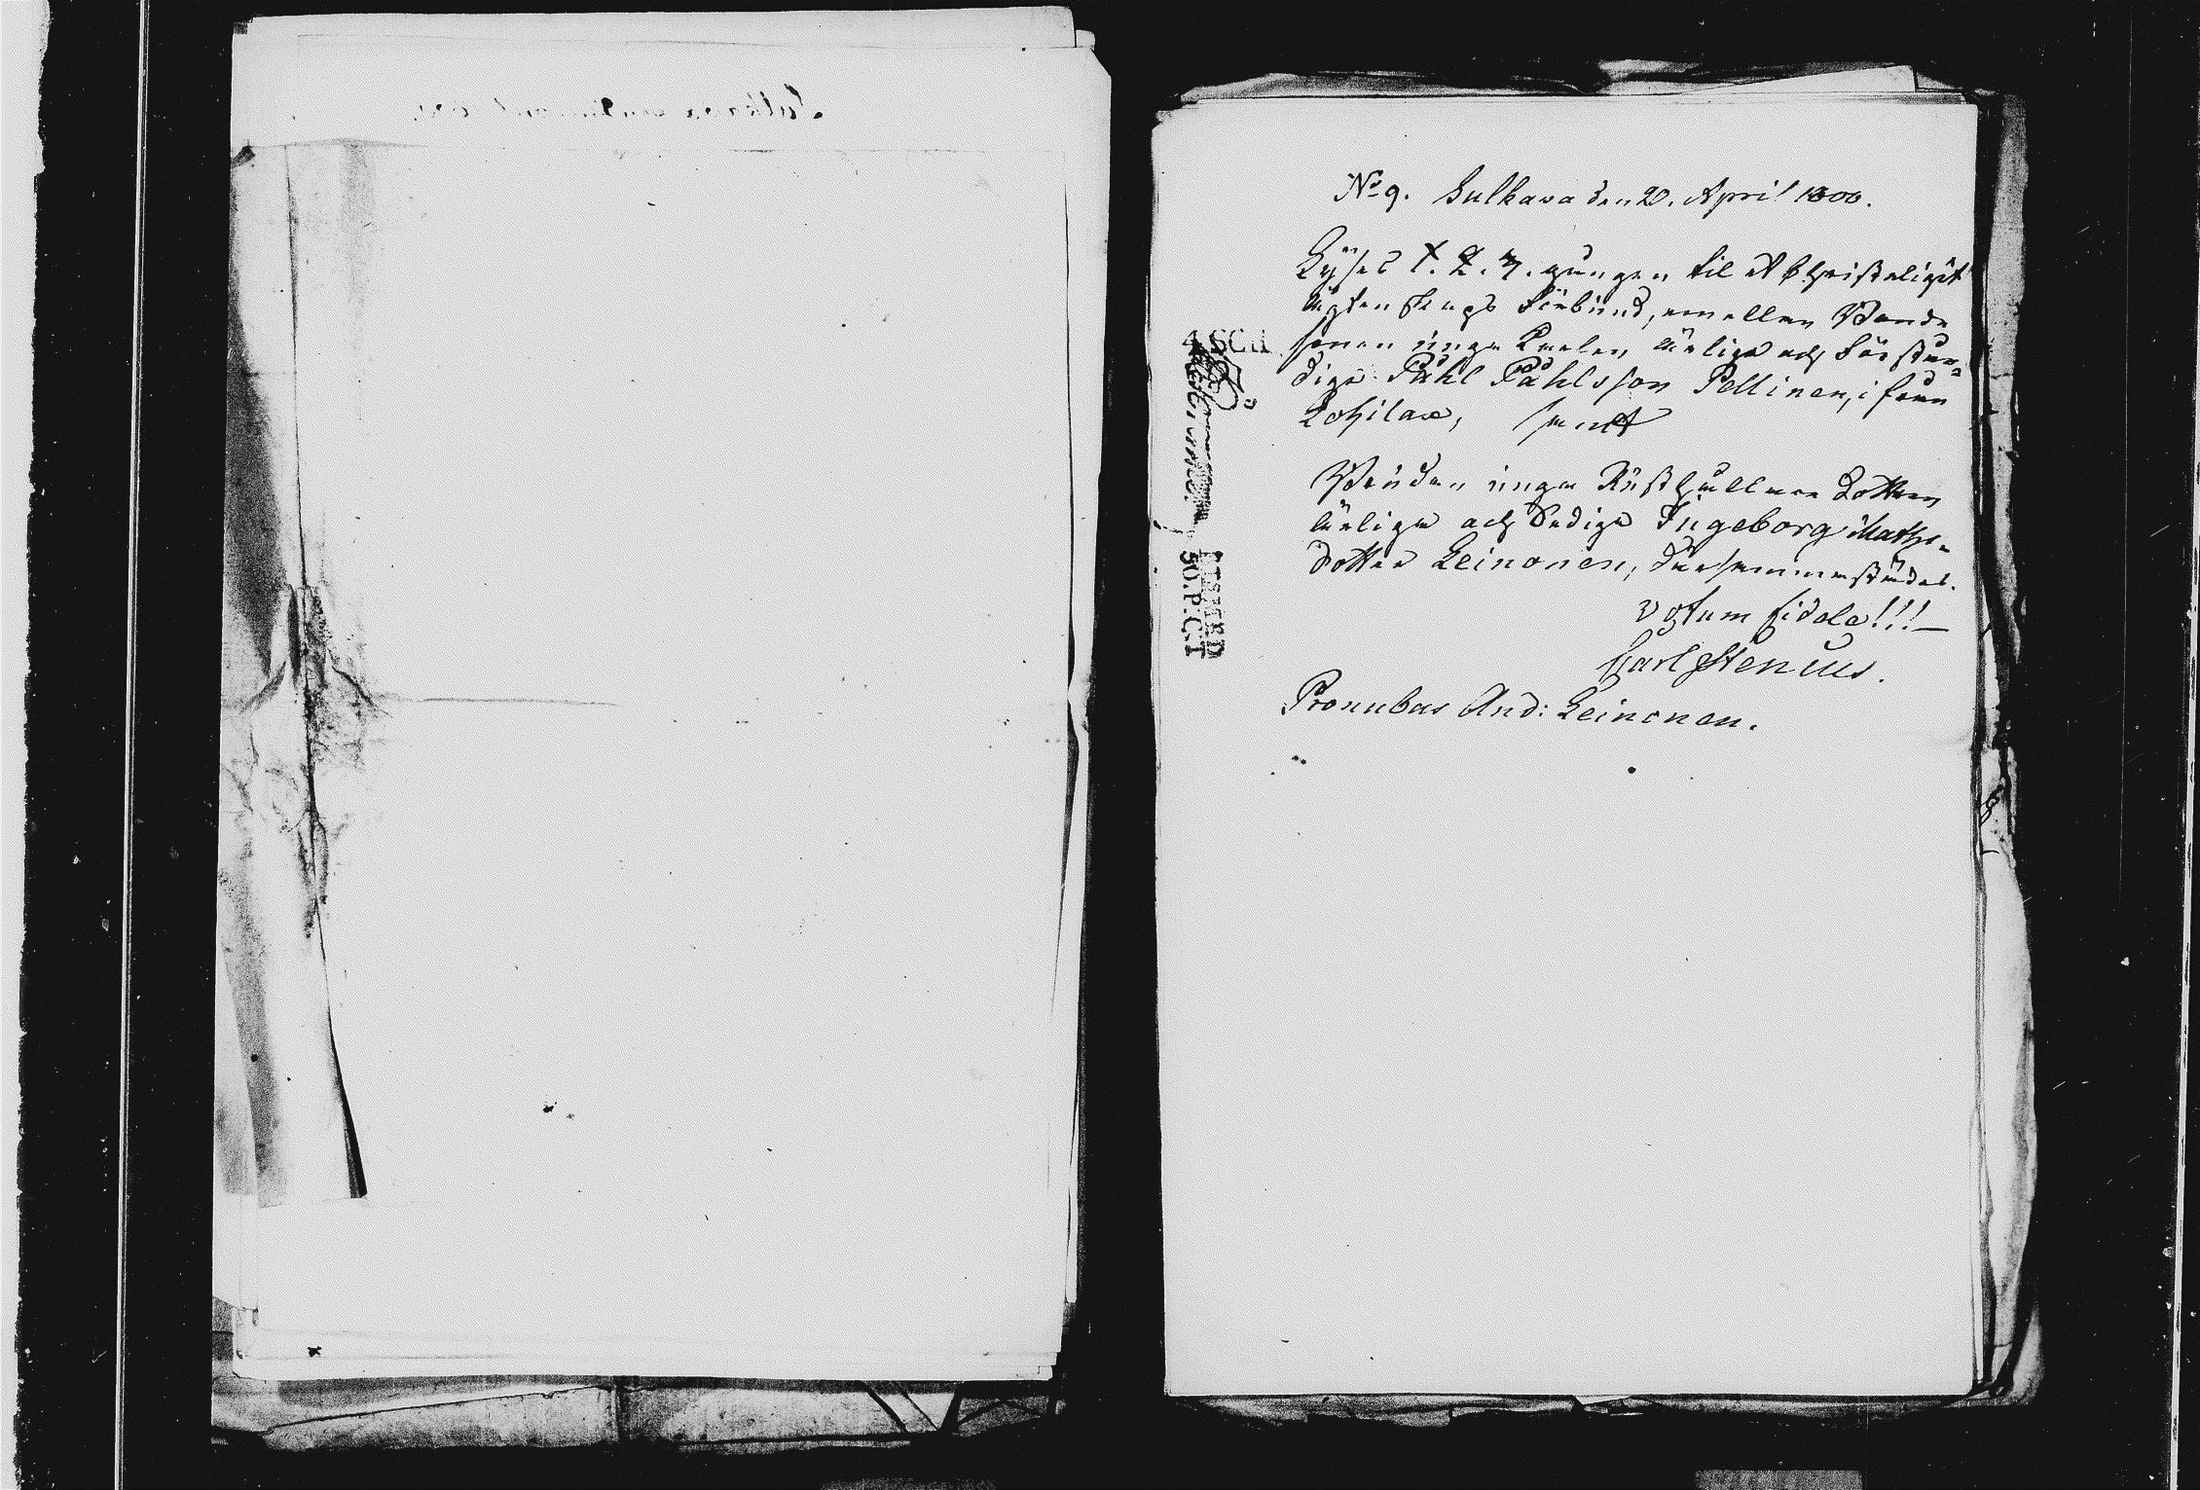 No 9. Sulkava den 20. April 1800.
Lyses 1. 2. 3. gången til et Christeligit
ägtenskaps förbund, emellan Bonde
sonen unga Karlen, ärlige och förstån-
dige Påhl Påhlsson Pellinen, ifrån
Lohilax, samt
Bruden unga Rusthållare Dottren
ärliga och Sediga Ingeborg Maths-
dotter Leinonen, därsammastädes.
votum fidele!!!
Carl Stenius.
Pronubus And: Leinonen.
4 SCH
50. P. C-T